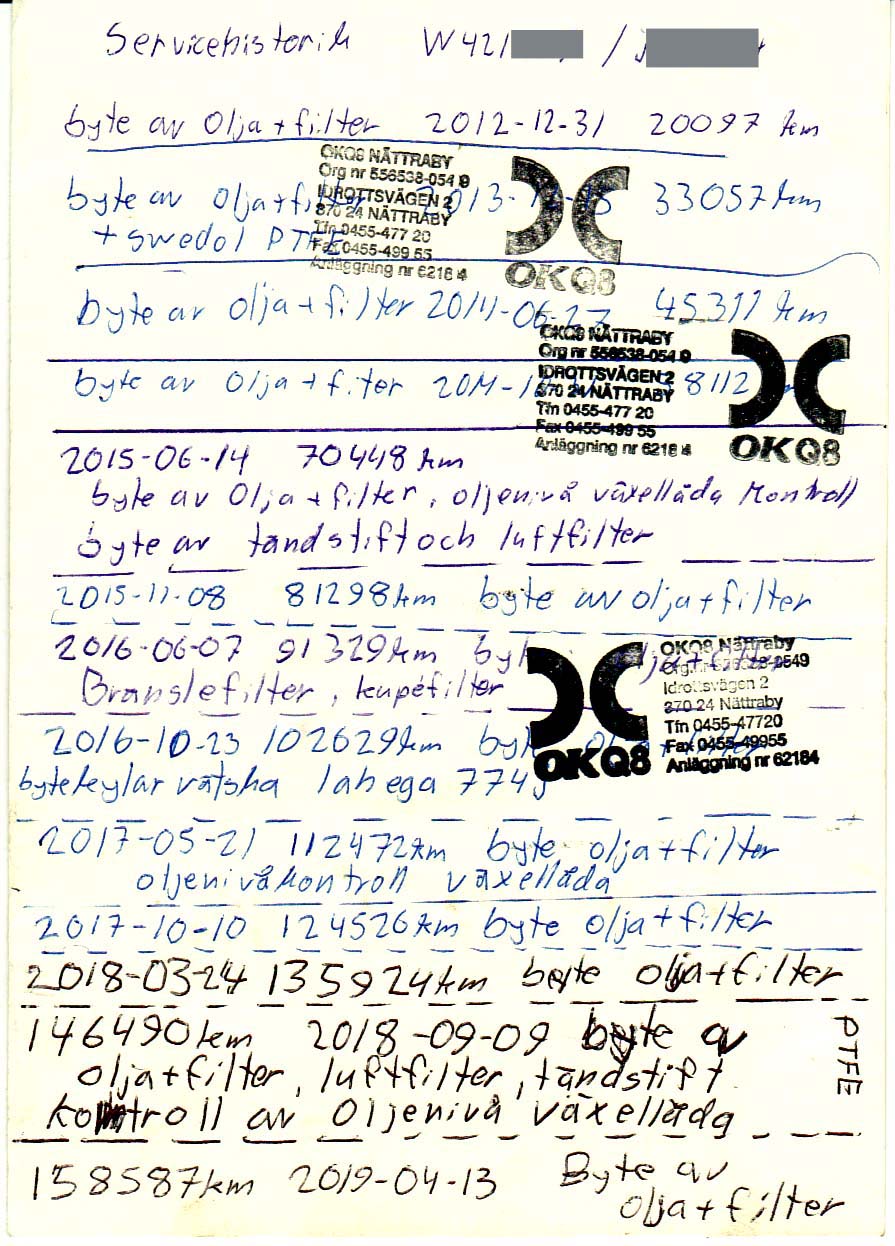 Servicehistorik W421 /
byte av Olja + filter 2012-12-31 20097 km
OKQ8 NÄTTRABY
Org nr 556538-054 9
IDROTTSVÄGEN 2
370 24 NÄTTRABY
Tfn 0455-477 20
Fax 0455-499 55
Anläggning nr 6218 4
OKQ8
byte av Olja + filter 2013-12- 33057 km
+ swedol PTFE
byte av olja + filter 2014-06-27 45311 km
OKQ8 NÄTTRABY
Org nr 556538-054 9
IDROTTSVÄGEN 2
370 24 NÄTTRABY
Tfn 0455-477 20
Fax 0455-499 55
Anläggning nr 6218 4
OKQ8
byte av Olja + filter 2014- 8112
2015-06-14 70448 km
byte av Olja + filter, oljenivå växellåda Kontroll
byte av tändstift och luftfilter
2015-11-08 81298 km byte av olja + filter
2016-06-07 91329 km byte olja + filter
Bränslefilter, kupéfilter
OKQ8
OKQ8 Nättraby
Idrottsvägen 2
370 24 Nättraby
Tfn 0455-47720
Fax 0455-49955
Anläggning nr 62184
2016-10-23 102629 km byte olja + filter
byte kylar vätska lahega 774
2017-05-21 112472 km byte olja + filter
oljenivåkontroll växellåda
2017-10-10 124526 km byte olja + filter
2018-03-24 135924 km byte olja + filter
146490 km 2018-09-09 byte av
olja + filter, luftfilter, tändstift
Kontroll av Oljenivå växellåda
PTFE
158587 km 2019-04-13 Byte av
olja + filter